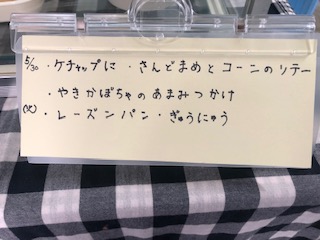 5/30 ・ケチャップに ・さんどまめとコーンのソテー
・やきかぼちゃのあまみつかけ
(火) ・レーズンパン・ぎゅうにゅう